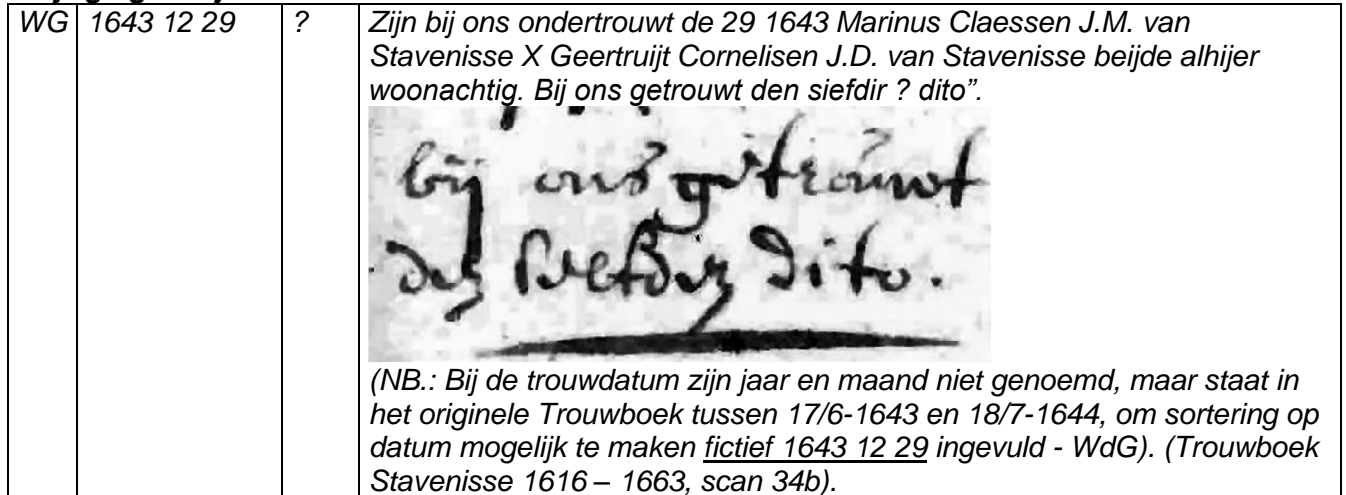 WG 1643 12 29 ? Zijn bij ons ondertrouwt de 29 1643 Marinus Claessen J.M. van
Stavenisse X Geertruijt Cornelisen J.D. van Stavenisse beijde alhijer
woonachtig. Bij ons getrouwt den siefdir ? dito”.
bij ons getrouwt
den dito.
(NB.: Bij de trouwdatum zijn jaar en maand niet genoemd, maar staat in
het originele Trouwboek tussen 17/6-1643 en 18/7-1644, om sortering op
datum mogelijk te maken fictief 1643 12 29 ingevuld - WdG). (Trouwboek
Stavenisse 1616 – 1663, scan 34b).